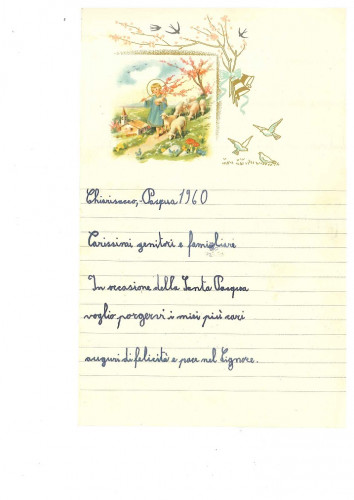 Chiarisacco, Pasqua 1960
Carissimi genitori e famigliari
In occasione della Santa Pasqua
voglio porgervi i miei più cari
auguri di felicità e pace nel Signore.